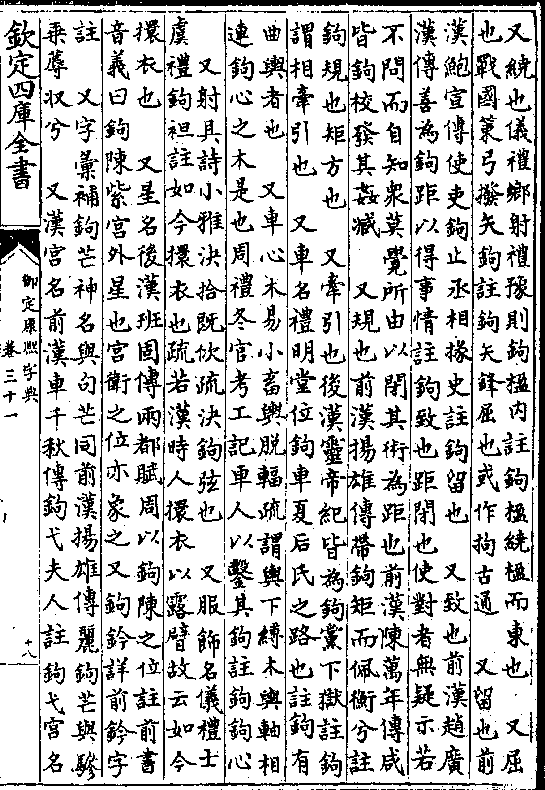 又繞也儀禮鄉射禮豫則鉤楹内註鉤楹繞楹而東也　又屈
也戰國策弓撥矢鉤註鉤矢鋒屈也或作拘古通　又留也前
漢鮑宣傳使吏鉤止丞相掾史註鉤留也　又致也前漢趙廣
漢傳善為鉤距以得事情註鉤致也距閉也使對者無疑示若
不問而自知衆莫覺所由以閉其術為距也前漢陳萬年傳咸
皆鉤校發其姦臧　又規也前漢揚雄傳帶鉤矩而佩衡兮註
鉤規也矩方也　又牽引也後漢靈帝紀皆為鉤黨下獄註鉤
謂相牽引也　又車名禮明堂位鉤車夏后氏之路也註鉤有
曲輿者也　又車心木易小畜輿脱輻疏謂輿下縛木與軸相
連鉤心之木是也周禮冬官考工記車人以鑿其鉤註鉤鉤心
又射具詩小雅決拾既佽疏決鉤弦也　又服飾名儀禮士
虞禮鉤袒註如今擐衣也疏若漢時人擐衣以露臂故云如今
擐衣也　又星名後漢班固傳兩都賦周以鉤陳之位註前書
音義曰鉤陳紫宮外星也宮衛之位亦象之又鉤鈐詳前鈐字
註　又字彙補鉤芒神名與句芒同前漢揚雄傳麗鉤芒與驂
蓐收兮　又漢宮名前漢車千秋傳鉤弋夫人註鉤弋宮名
欽定四庫全書
御定康熙字典
卷三十一
十八